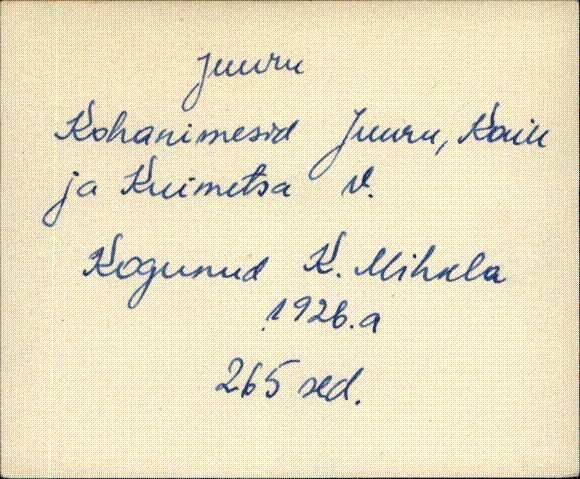 Juuru
Kohanimesid Juuru, Kaiu
ja Kuimetsa v.
Kogunud K. Mihkla
1926.a
265 sed.